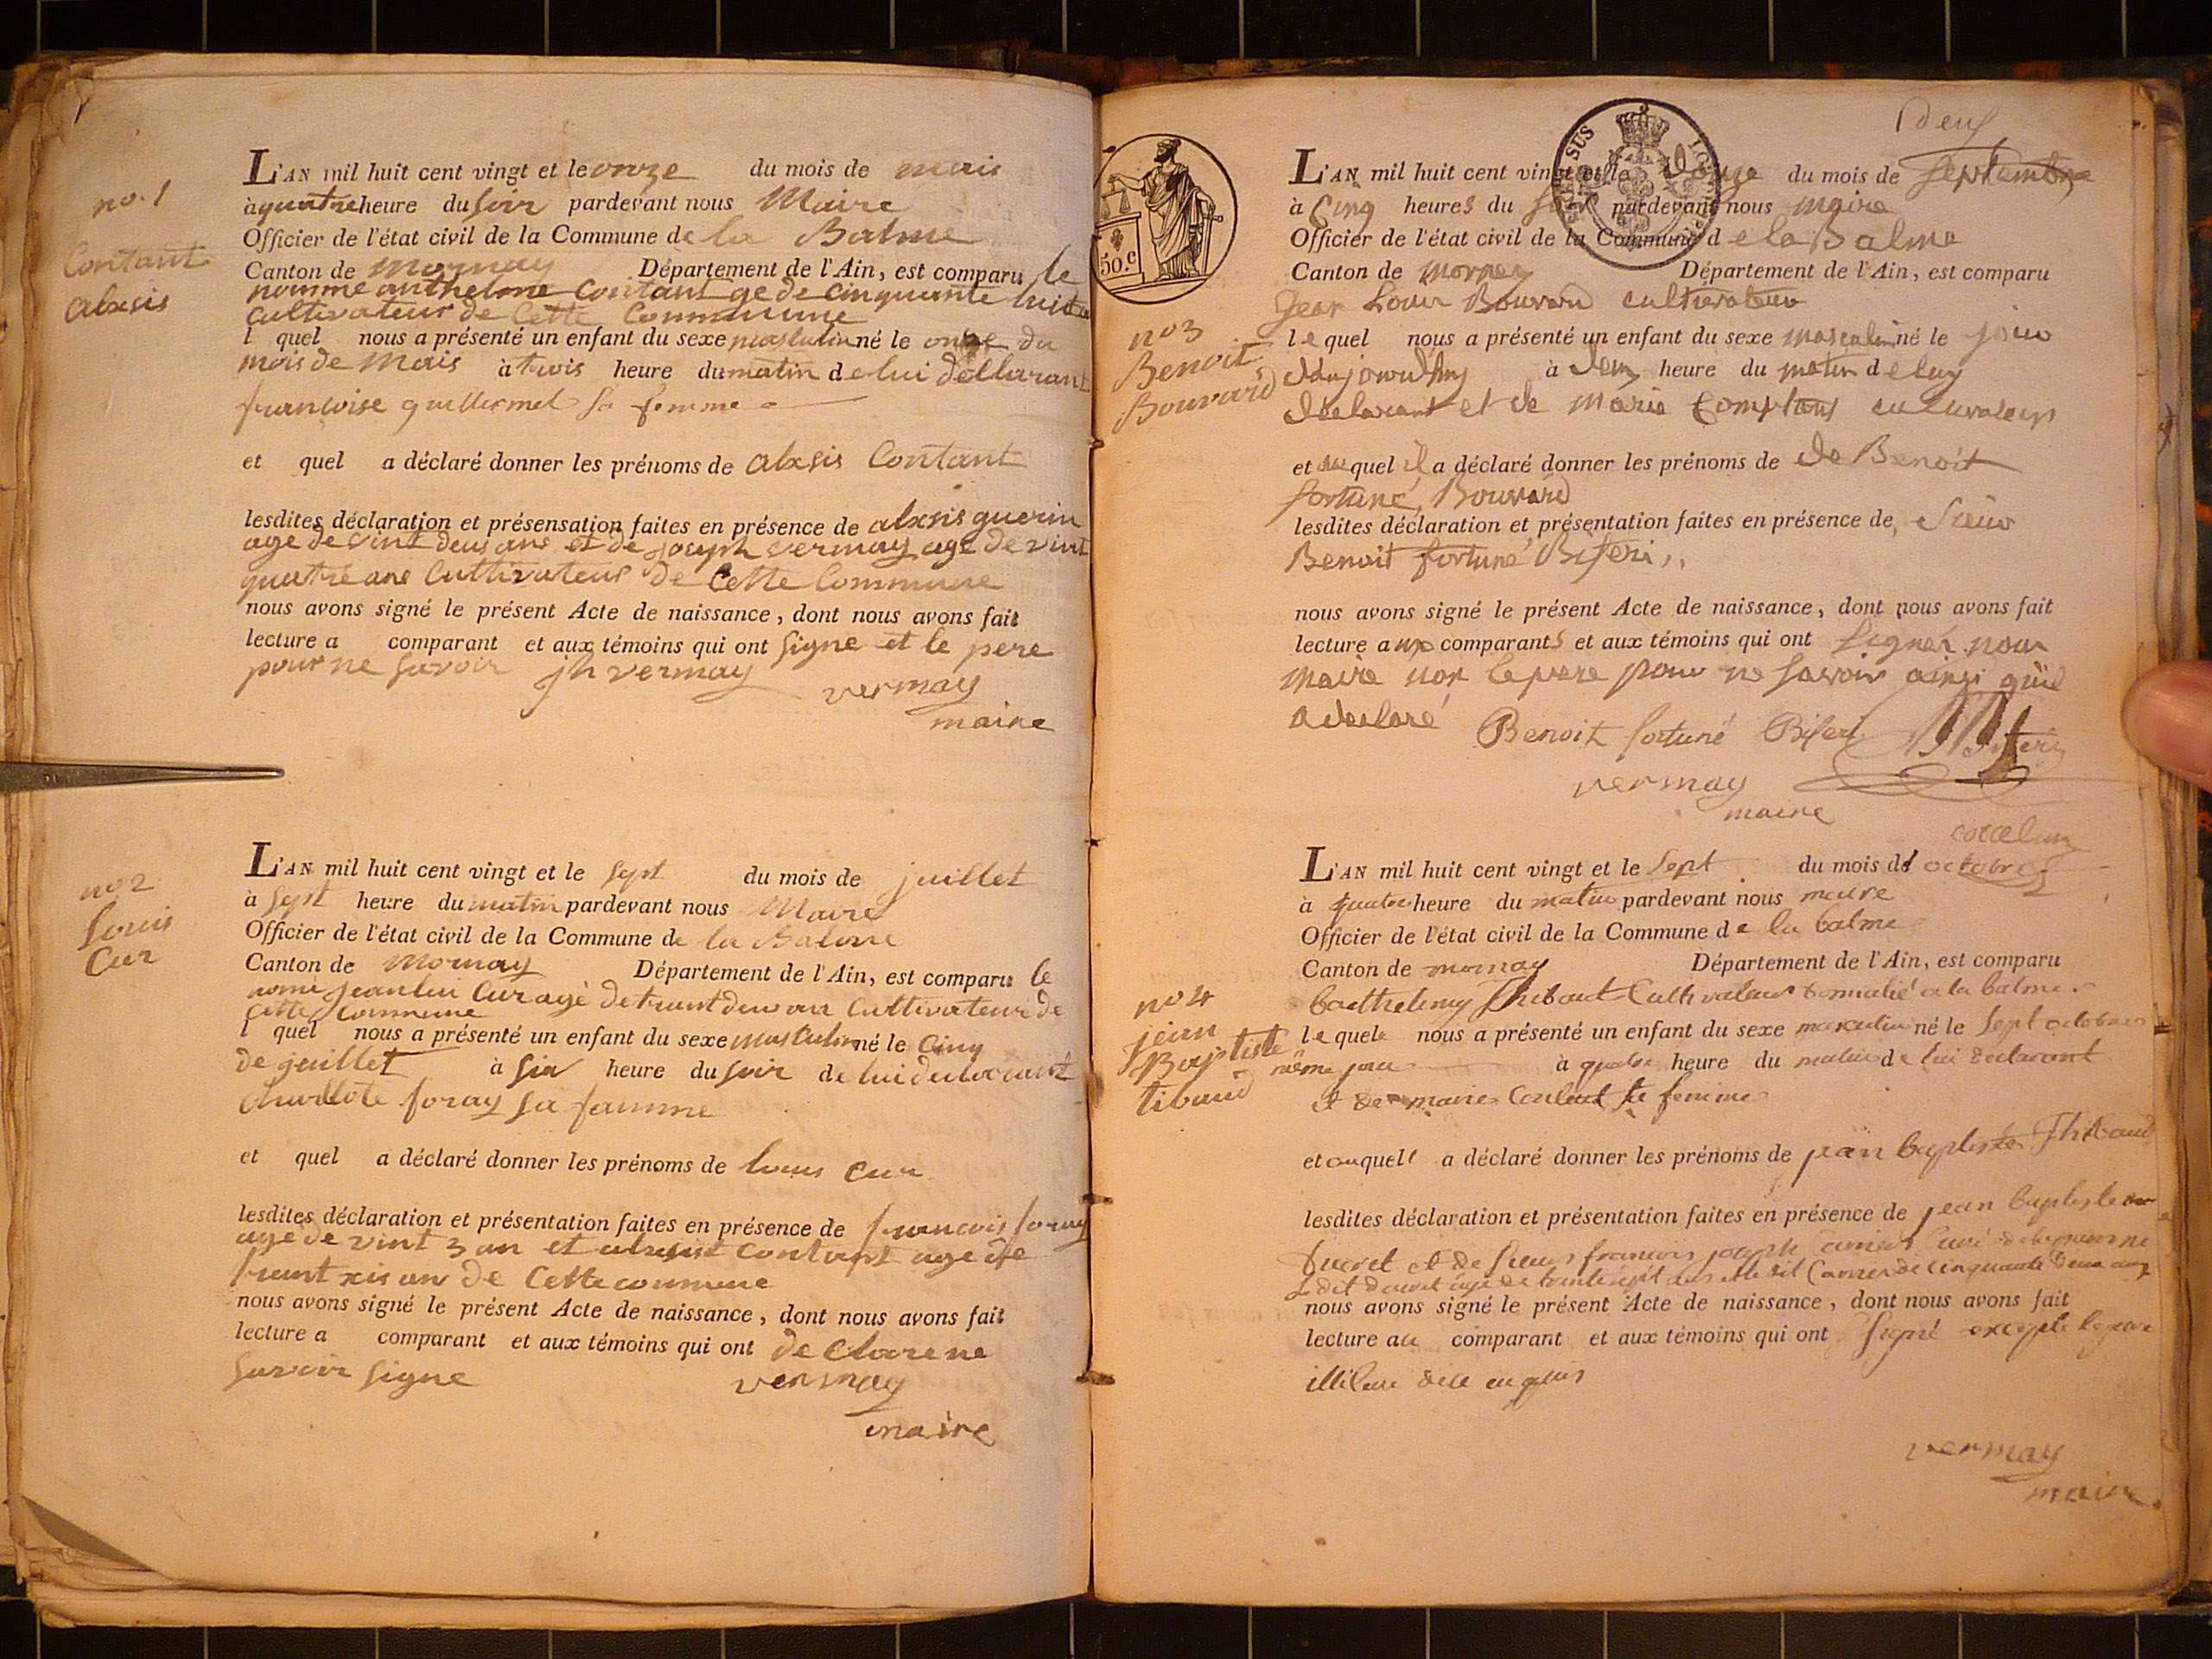 no. 1
Contant
alxsis
L'AN mil huit cent vingt et le onze du mois de mais
à quatre heure du soir pardevant nous Maire
Officier de l'état civil de la Commune de la Balme
Canton de Mornay Département de l'Ain, est comparu le
nomme anthelme Contant age de cinquante huit
cultivateur de Cette Commune
l quel nous a présenté un enfant du sexe masculin né le onze du
mois de Mais à trois heure du matin de lui declarant
françoise guillermet sa femme
et quel a déclaré donner les prénoms de alxsis Contant
lesdites déclaration et présensation faites en présence de alxsis guerin
age de vint deus ans et de joseph vermay age de vint
quatre ans Cultivateur de Cette Commune
nous avons signé le présent Acte de naissance, dont nous avons fait
lecture a comparant et aux témoins qui ont signe et le pere
pour ne savoir jh vermay
vermay
maire
no 2
louis
Cur
L'AN mil huit cent vingt et le sept du mois de juillet
à sept heure du matin pardevant nous Maire
Officier de l'état civil de la Commune de la Balme
Canton de Mornay Département de l'Ain, est comparu le
nomé Cur agé de Cultivateur de
cette Commune
l quel nous a présenté un enfant du sexe masculin né le Cinq
de juillet à six heure du soir de lui declarant
Charllote foray sa famme
et quel a déclaré donner les prénoms de louis Cur
lesdites déclaration et présentation faites en présence de francois foray
age de vint 3 an et Contant age de
trant xis an de Cette commune
nous avons signé le présent Acte de naissance, dont nous avons fait
lecture a comparant et aux témoins qui ont de Clare ne
savoir signe vermay
maire
deux
50.c
SUS
no 3
Benoit
Bouvard
L'AN mil huit cent vingt et le douze du mois de septembre
à Cinq heures du soir pardevant nous maire
Officier de l'état civil de la Commune de la Balme
Canton de Mornay Département de l'Ain, est comparu
Jean Louis Bouvard cultivateur
le quel nous a présenté un enfant du sexe masculin né le jour
d'aujourdhuy à deux heure du matin de luy
declarant et de Marie Comptant cultivateurs
et au quel il a déclaré donner les prénoms de de Benoit
fortuné, Bouvard
lesdites déclaration et présentation faites en présence de, sieur
Benoit fortuné Biferi,,
nous avons signé le présent Acte de naissance, dont nous avons fait
lecture aux comparants et aux témoins qui ont signer nous
maire non le pere pour ne savoir ainsi qu'il
a declaré Benoit fortuné Biferi
vermay
maire
no 4
jean
Baptiste
tibaud
L'AN mil huit cent vingt et le sept du mois d'octobre
à quatre heure du matin pardevant nous maire
Officier de l'état civil de la Commune de la balme
Canton de mornay Département de l'Ain, est comparu
barthelemy thibaut Cultivateur a la balme
le quel nous a présenté un enfant du sexe masculin né le sept octobre
même jour à quatre heure du matin de lui declarant
et de marie Contant sa femme
et auquel a déclaré donner les prénoms de jean baptiste Thibaud
lesdites déclaration et présentation faites en présence de jean baptiste
et de sieur francois joseph curé
nous avons signé le présent Acte de naissance, dont nous avons fait
lecture au comparant et aux témoins qui ont signé excepté le pere
vermay
maire